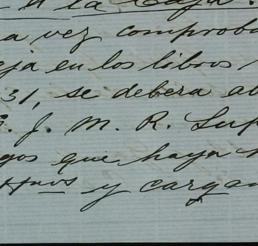 a la Caja
a vez comproba
eja en los libros
31, se debera ab
J. M. R. Lup
gos que haya
y cargan